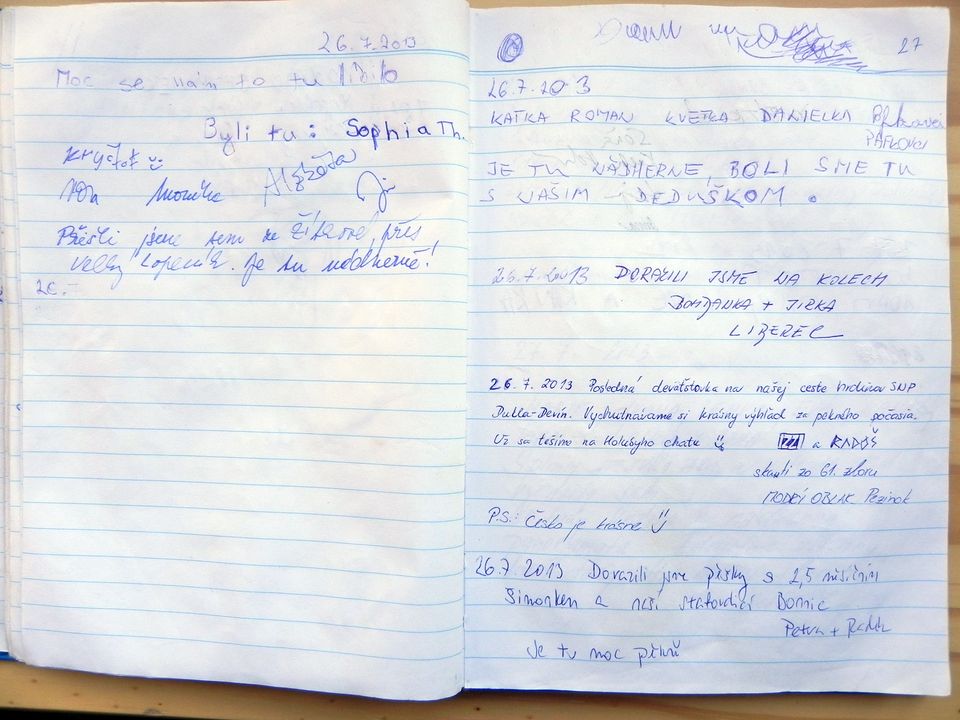 26.7.2013
Moc se nám to tu líbilo
Byli tu: Sophia Th.
Kryštof
Nora Monika Alžběta Jiří
Přešli jsme sem ze Žítkové, přes
Velký Lopeník. Je tu nádherně!
26.7
27
26.7.2013
KATKA ROMAN KVETKA DANIELKA
PAFKOVCI
JE TU NÁDHERNE, BOLI SME TU
S VAŠIM DEDUŠKOM.
26.7.2013 DORAZILI JSME NA KOLECH
BOHDANKA + JIRKA
LIBEREC
26. 7. 2013 Posledná deväťstovka na našej ceste hrdinov SNP
Dukla-Devín. Vychutnávame si krásny výhľad za pekného počasia.
Už sa tešíme na Holubyho chatu
a RADOŠ
skauti zo 61. zboru
MODRÝ OBLAK Pezinok
P.S.: Česko je krásne
26.7 2013 Dorazili jsme pěšky s 2,5 měsíčním
Simonkem a naší
Petra + Radek
Je tu moc pěkně